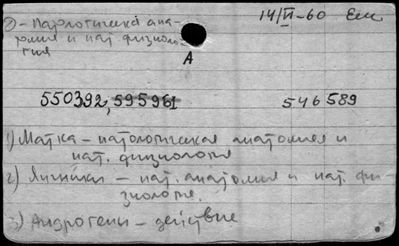 2) - Патологическ ана-
томия и пат. физиоло-
гия
14/VI-60 Еш
A
550392, 595961
546589
1) Матка - патологическая анатомия и
пат. физиология
2) Яичники - пат. анатомия и пат. фи-
зиология.
3) Андрогены - действие